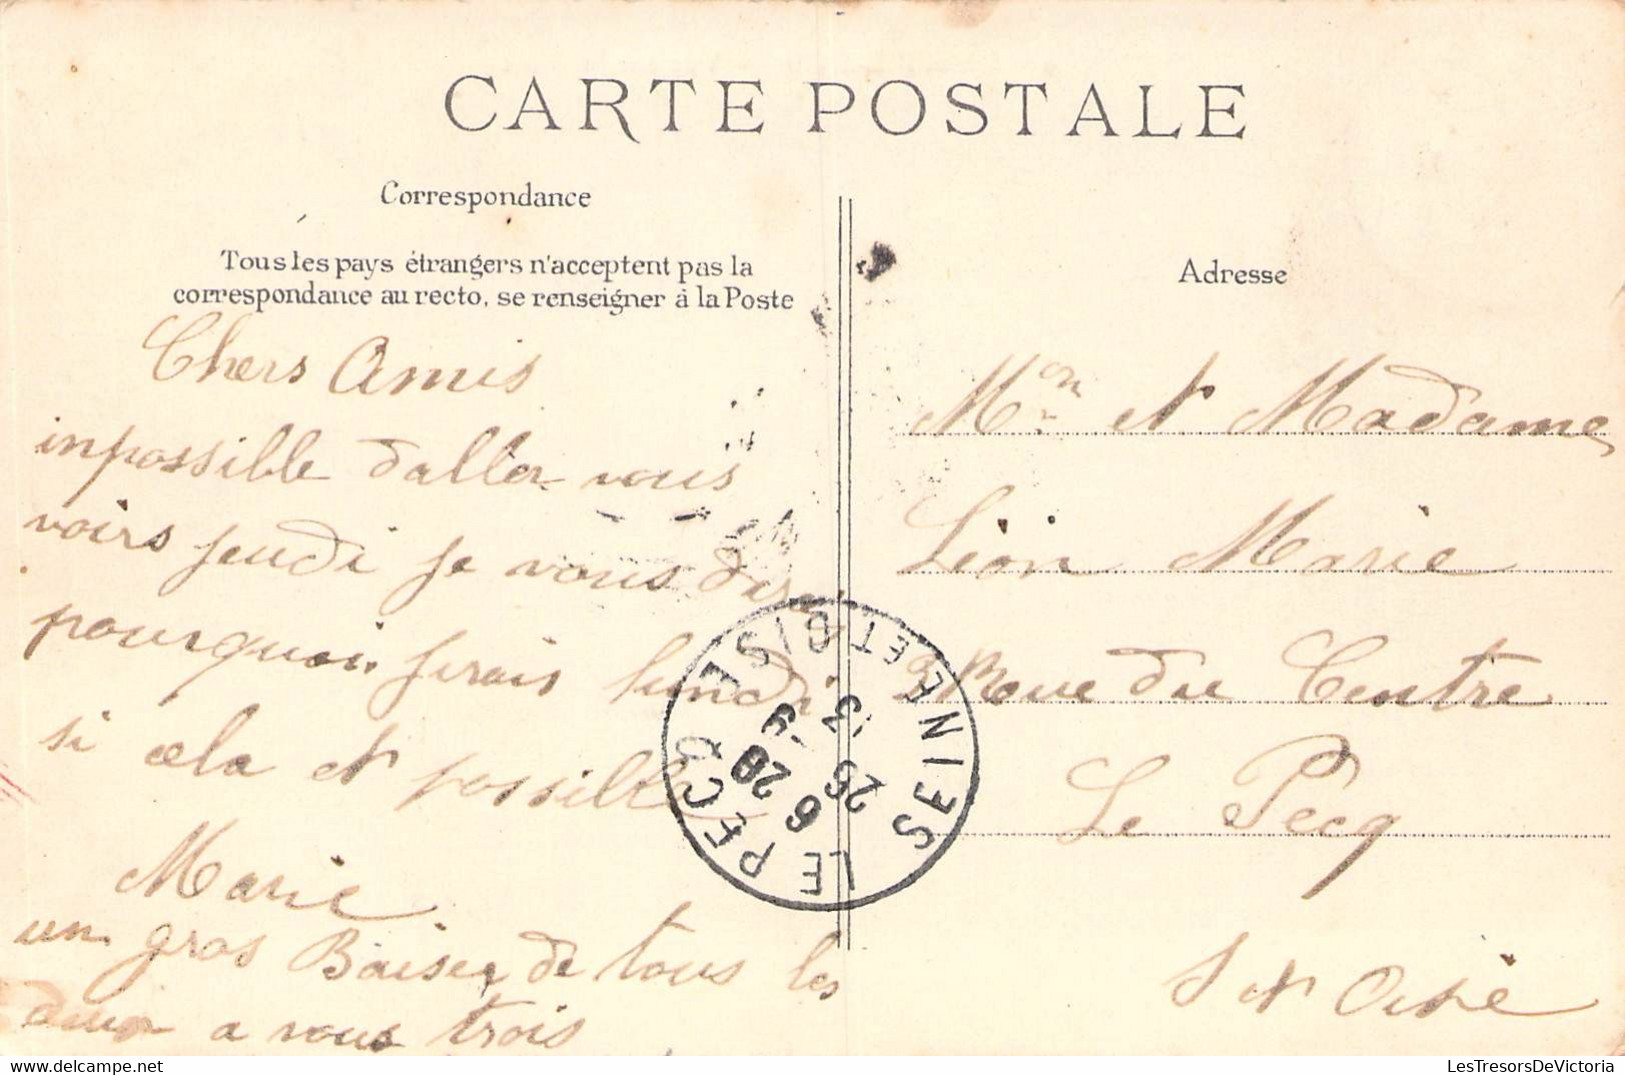 CARTE POSTALE
Correspondance
Tous les pays étrangers n'acceptent pas la
correspondance au recto, se renseigner à la Poste
Chers Amis
inpossible daller vous
voirs jeudi je vous dirai
pourquoi jirais lundi
si cela et possible
Marie
un gros Baiser de tous les
a vous trois
Adresse
Mr et Madame
Léon Marie
Rue du Centre
Le Pecq
S et Oise
LE PECQ SEINE ET OISE
6 20
26 - 9
13
LesTresorsDeVictoria